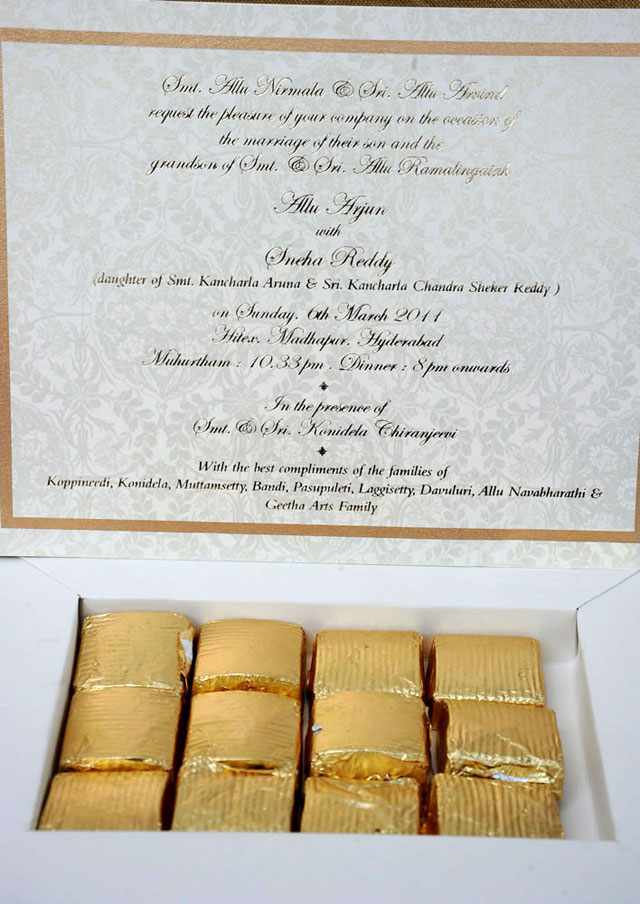 Smt. Allu Nirmala & Sri. Allu Arvind
request the pleasure of your company on the occasion of
the marriage of their son and the
grandson of Smt. & Sri. Allu Ramalingaiah
Allu Arjun
with
Sneha Reddy
(daughter of Smt. Kancharla Aruna & Sri. Kancharla Chandra Sheker Reddy )
on Sunday, 6th March 2011
Hitex, Madhapur, Hyderabad
Muhurtham : 10.33pm . Dinner : 8pm onwards
In the presence of
Smt. & Sri. Konidela Chiranjeevi
With the best compliments of the families of
Koppineedi, Konidela, Muttamsetty, Bandi, Pasupuleti, Laggisetty, Davuluri, Allu Navabharathi &
Geetha Arts Family